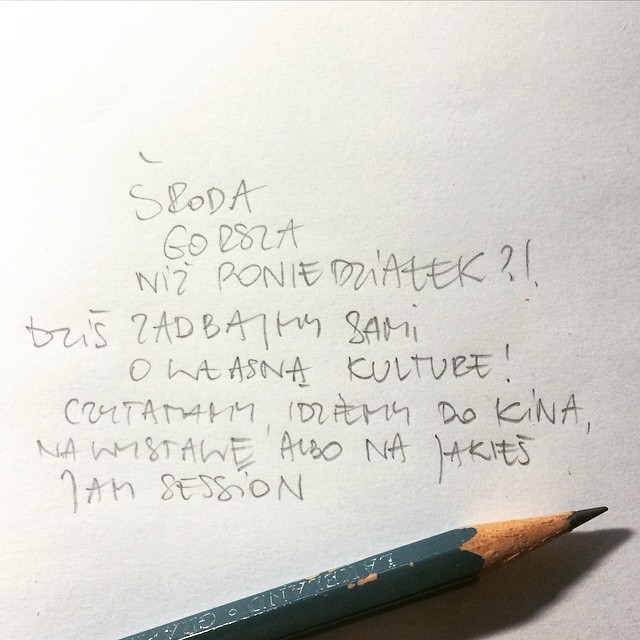 ŚRODA
GORSZA
NIŻ PONIEDZIAŁEK?!
DZIŚ ZADBAJMY SAMI
O WŁASNĄ KULTURĘ!
CZYTAMAMY, IDZIEMY DO KINA,
NA WYSTAWĘ, ALBO NA JAKIEŚ
JAM SESSION